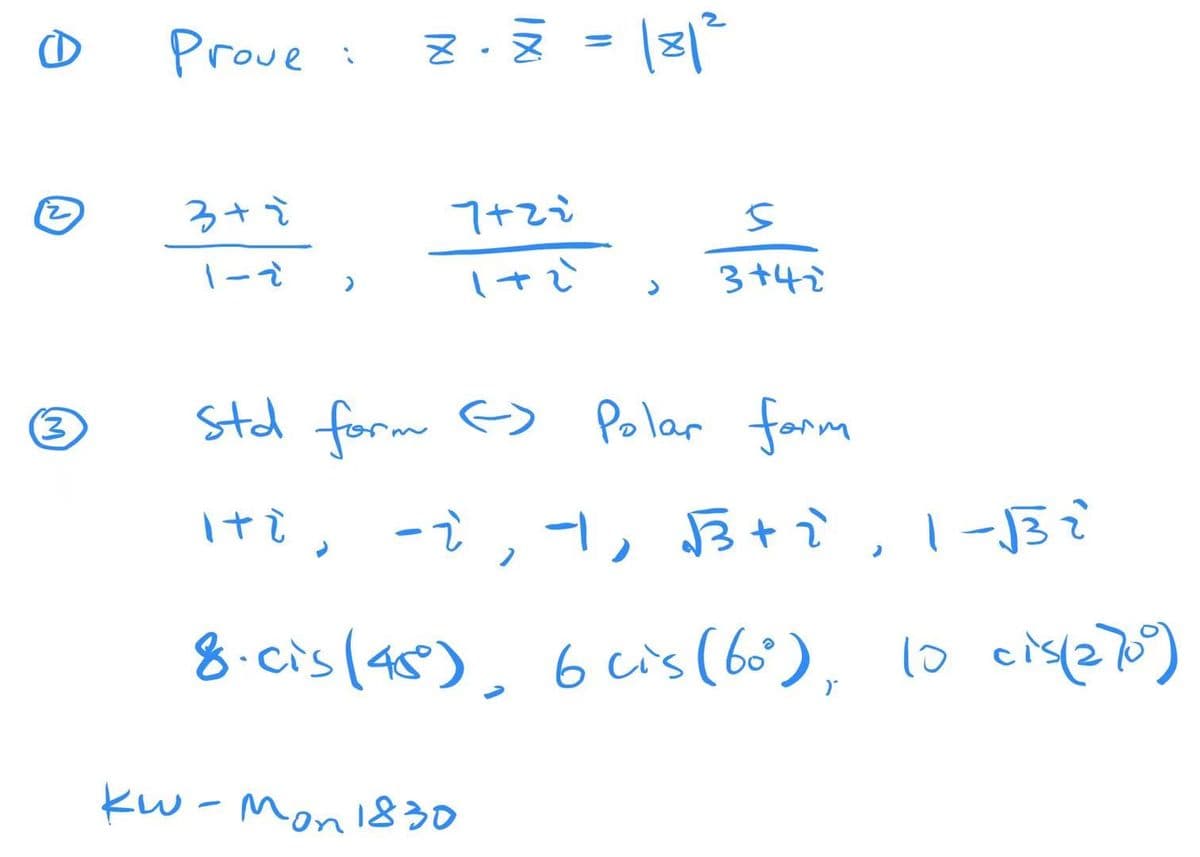 ① Prove : z · z̄ = |z|²
② (3+i)/(1-i) , (7+2i)/(1+i) , 5/(3+4i)
③ std form <-> Polar form
1+i , -i , -1 , √3+i , 1-√3 i
8·cis(45°) , 6 cis(60°) , 10 cis(270°)
KW - Mon 1830